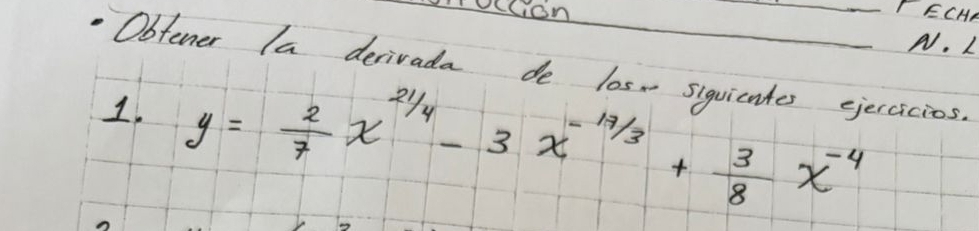 FECHA
N. L
• Obtener la derivada de los siguientes ejercicios.
1. y = 2/7 x^21/4 - 3 x^-17/3 + 3/8 x^-4